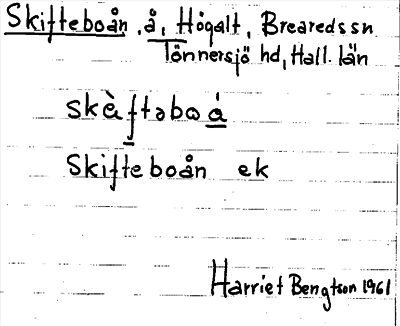 Skifteboån, å, Högalt, Brearedssn
Tönnersjö hd, Hall. län
skè̀ftəboá
Skifteboån ek
Harriet Bengtson 1961